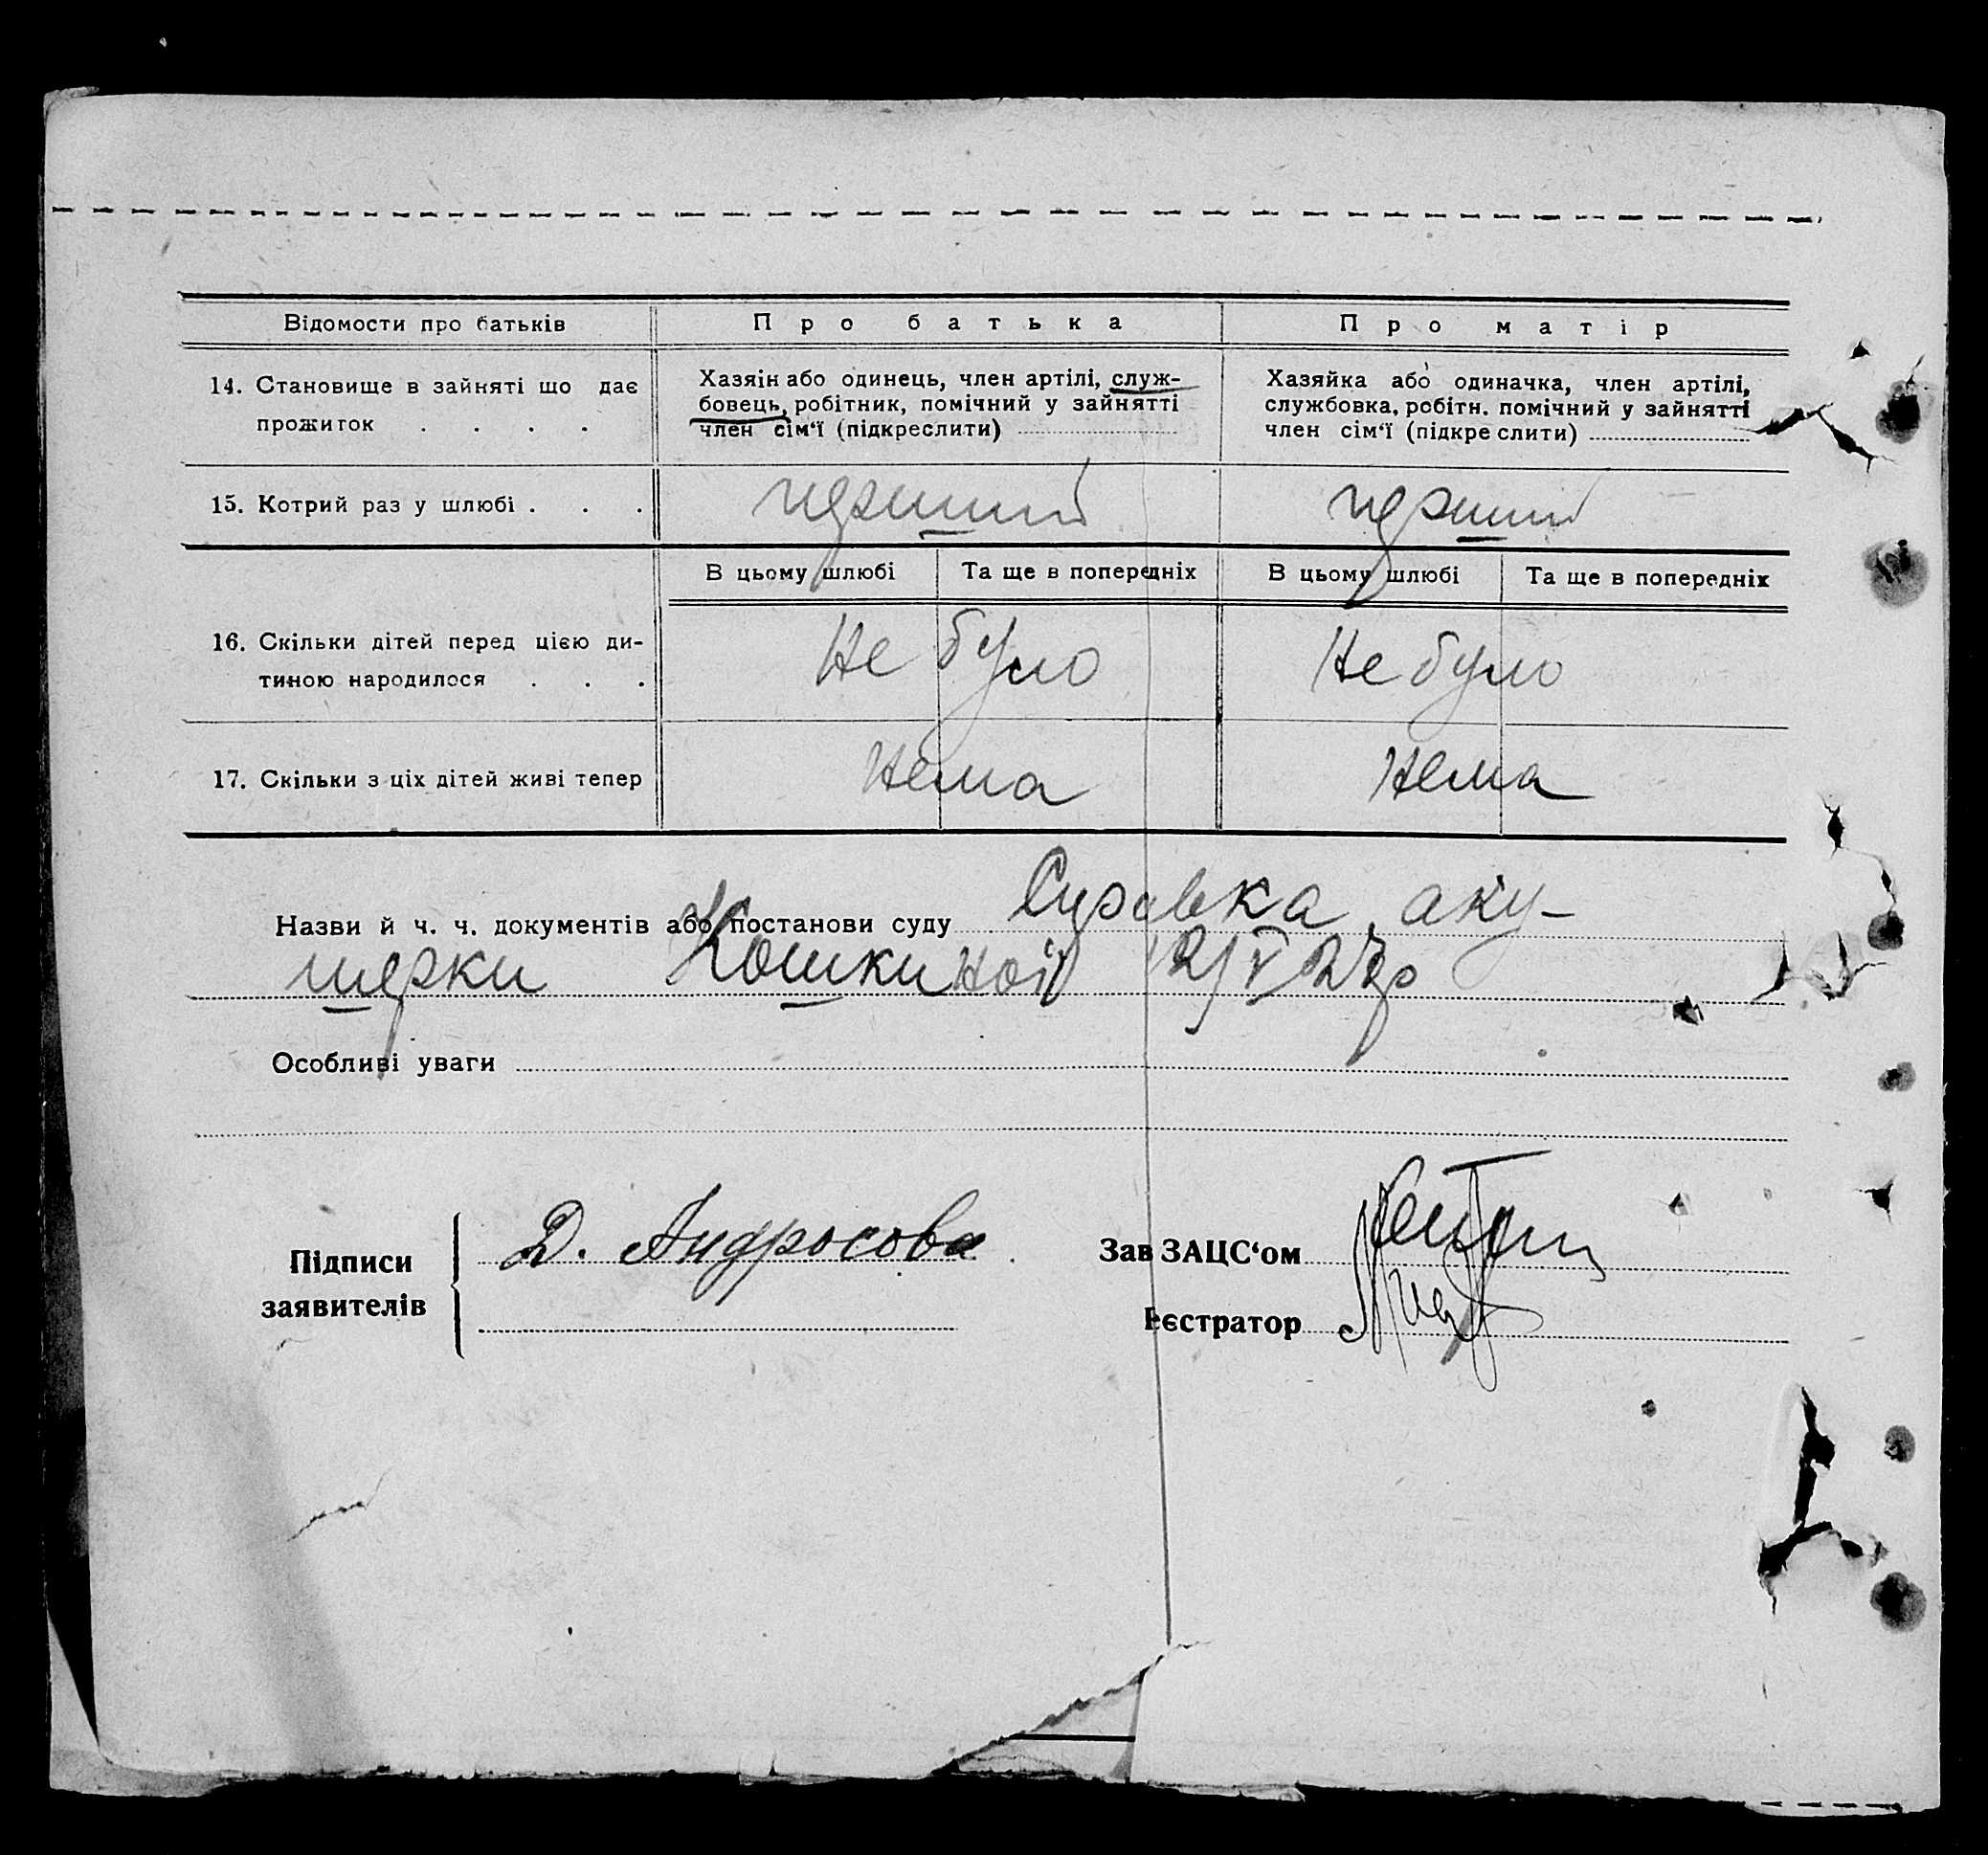 Відомости про батьків Про батька Про матір
14. Становище в зайняті що дає прожиток . . . .
Хазяїн або одинець, член артілі, служ-
бовець, робітник, помічний у зайнятті
член сім‘ї (підкреслити)
Хазяйка або одиначка, член артілі,
службовка, робітн. помічний у зайнятті
член сім‘ї (підкреслити)
15. Котрий раз у шлюбі . . . перший перший
В цьому шлюбі Та ще в попередніх В цьому шлюбі Та ще в попередніх
16. Скільки дітей перед цією ди-
тиною народилося . . . Не було Не було
17. Скільки з ціх дітей живі тепер Нема Нема
Назви й ч. ч. документів або постанови суду Справка аку-
шерки Кошкиної 12/V 27р
Особливі уваги
Підписи
заявителів
Д. Андросова
Зав ЗАЦС‘ом
Реєстратор